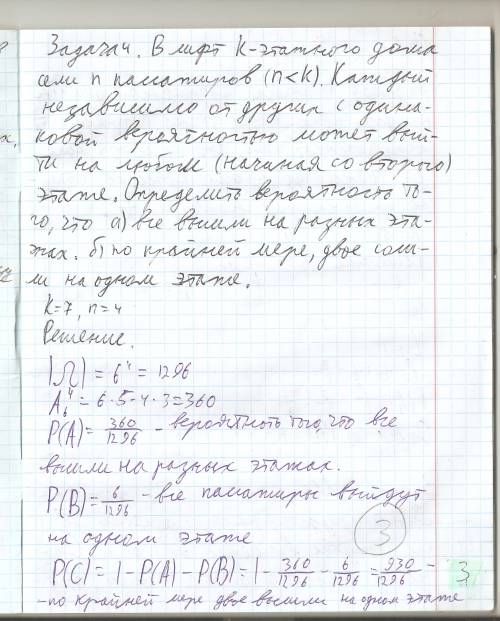 Задача 4. В лифт К-этажного дома
сели n пассажиров (n<k). Каждый
независимо от других с одина-
ковой вероятностью может вый-
ти на любом (начиная со второго)
этаже. Определить вероятность то-
го, что а) все вышли на разных эта-
жах. б) по крайней мере, двое сош-
ли на одном этаже.
K=7, n=4
Решение.
|Ω| = 6⁴ = 1296
A₆⁴ = 6·5·4·3=360
P(A) = 360/1296 - вероятность того, что все
вышли на разных этажах.
P(B) = 6/1296 - все пассажиры выйдут
на одном этаже
3
P(C) = 1-P(A)-P(B) = 1- 360/1296 - 6/1296 = 930/1296 -
3
-по крайней мере двое вышли на одном этаже